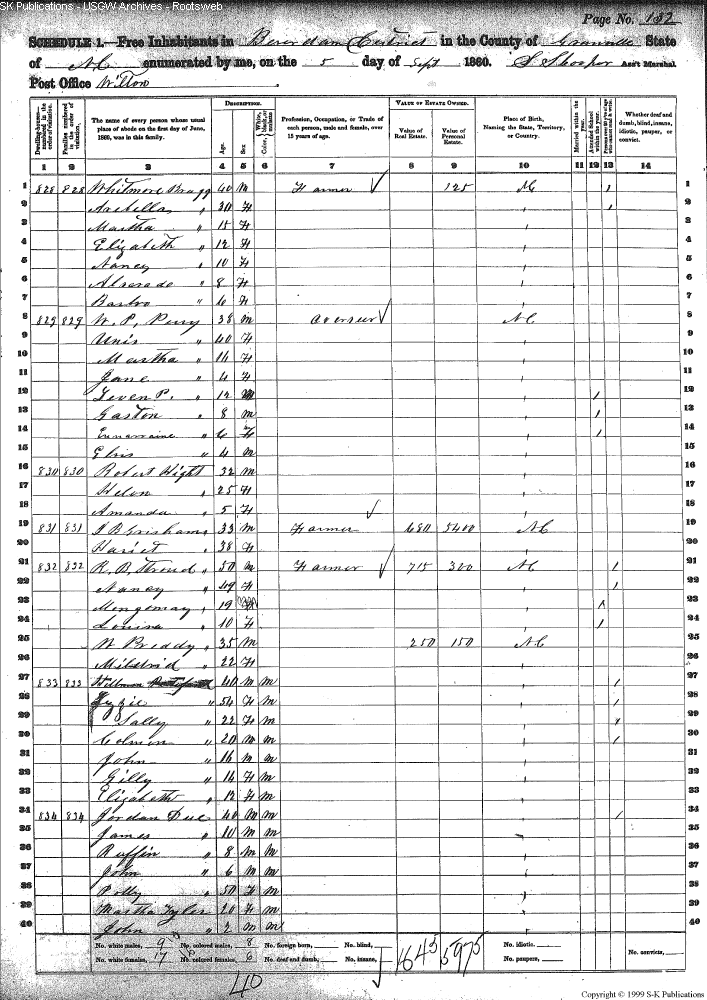 SK Publications - USGW Archives - Rootsweb
Page No. 132
SCHEDULE 1.—Free Inhabitants in Beverdam District in the County of Granville State
of NC enumerated by me, on the 5 day of Sept 1860. S Shooper Ass't Marshal
Post Office Wilton
Dwelling-houses— numbered in the order of visitation.
Families numbered in the order of visitation.
The name of every person whose usual place of abode on the first day of June, 1860, was in this family.
DESCRIPTION.
Age.
Sex.
Color, White, black, or mulatto.
Profession, Occupation, or Trade of each person, male and female, over 15 years of age.
VALUE OF ESTATE OWNED.
Value of Real Estate.
Value of Personal Estate.
Place of Birth, Naming the State, Territory, or Country.
Married within the year.
Attended School within the year.
Persons over 20 y'rs of age who cannot read & write.
Whether deaf and dumb, blind, insane, idiotic, pauper, or convict.
1 2 3 4 5 6 7 8 9 10 11 12 13 14
1 828 828 Whitmore Bragg 40 M Farmer √ 125 NC / 1
2 Arabella " 30 F " / 2
3 Martha " 15 F " 3
4 Elizabeth " 12 F " 4
5 Nancy " 10 F " 5
6 " 8 F " 6
7 " 6 F " 7
8 829 829 W. P. Perry 38 M Overseer √ NC 8
9 Unis " 40 F " 9
10 Martha " 14 F " 10
11 Jane " 4 F " 11
12 P. " 12 M " / 12
13 Gaston " 8 M " / 13
14 " 6 F " / 14
15 Elvis " 4 M " 15
16 830 830 Robert Hight 32 M " 16
17 Helen " 25 F " 17
18 Amanda " 5 F √ " 18
19 831 831 Grisham 33 M Farmer 680 5400 NC 19
20 Hariet " 38 F " 20
21 832 832 R. B. Stroud 50 M Farmer √ 715 300 NC / 21
22 Nancy " 49 F " / 22
23 Mongomay " 19 " / 23
24 Louisa " 10 F " / 24
25 W Briddy " 35 M 250 150 NC 25
26 Mildrid " 22 F " 26
27 833 833 Hillmon 40 M M " / 27
28 " 54 F M " / 28
29 Sally " 22 F M " / 29
30 Colmon " 20 M M " / 30
31 John " 16 M M " 31
32 Gilly " 14 F M " 32
33 Elizabeth " 12 F M " 33
34 834 834 Jordan Due 40 M M " / 34
35 James " 10 M M " 35
36 Ruffin " 8 M M " 36
37 John " 6 M M " 37
38 Polly " 50 F M " 38
39 Martha Tyler 20 F M " 39
40 John " 2 M M " 40
No. white males, 9 No. colored males, 8 No. foreign born, No. blind, 1645 5975 No. idiotic, No. convicts,
No. white females, 17 No. colored females, 6 No. deaf and dumb, No. insane, No. paupers,
40
Copyright © 1999 S-K Publications